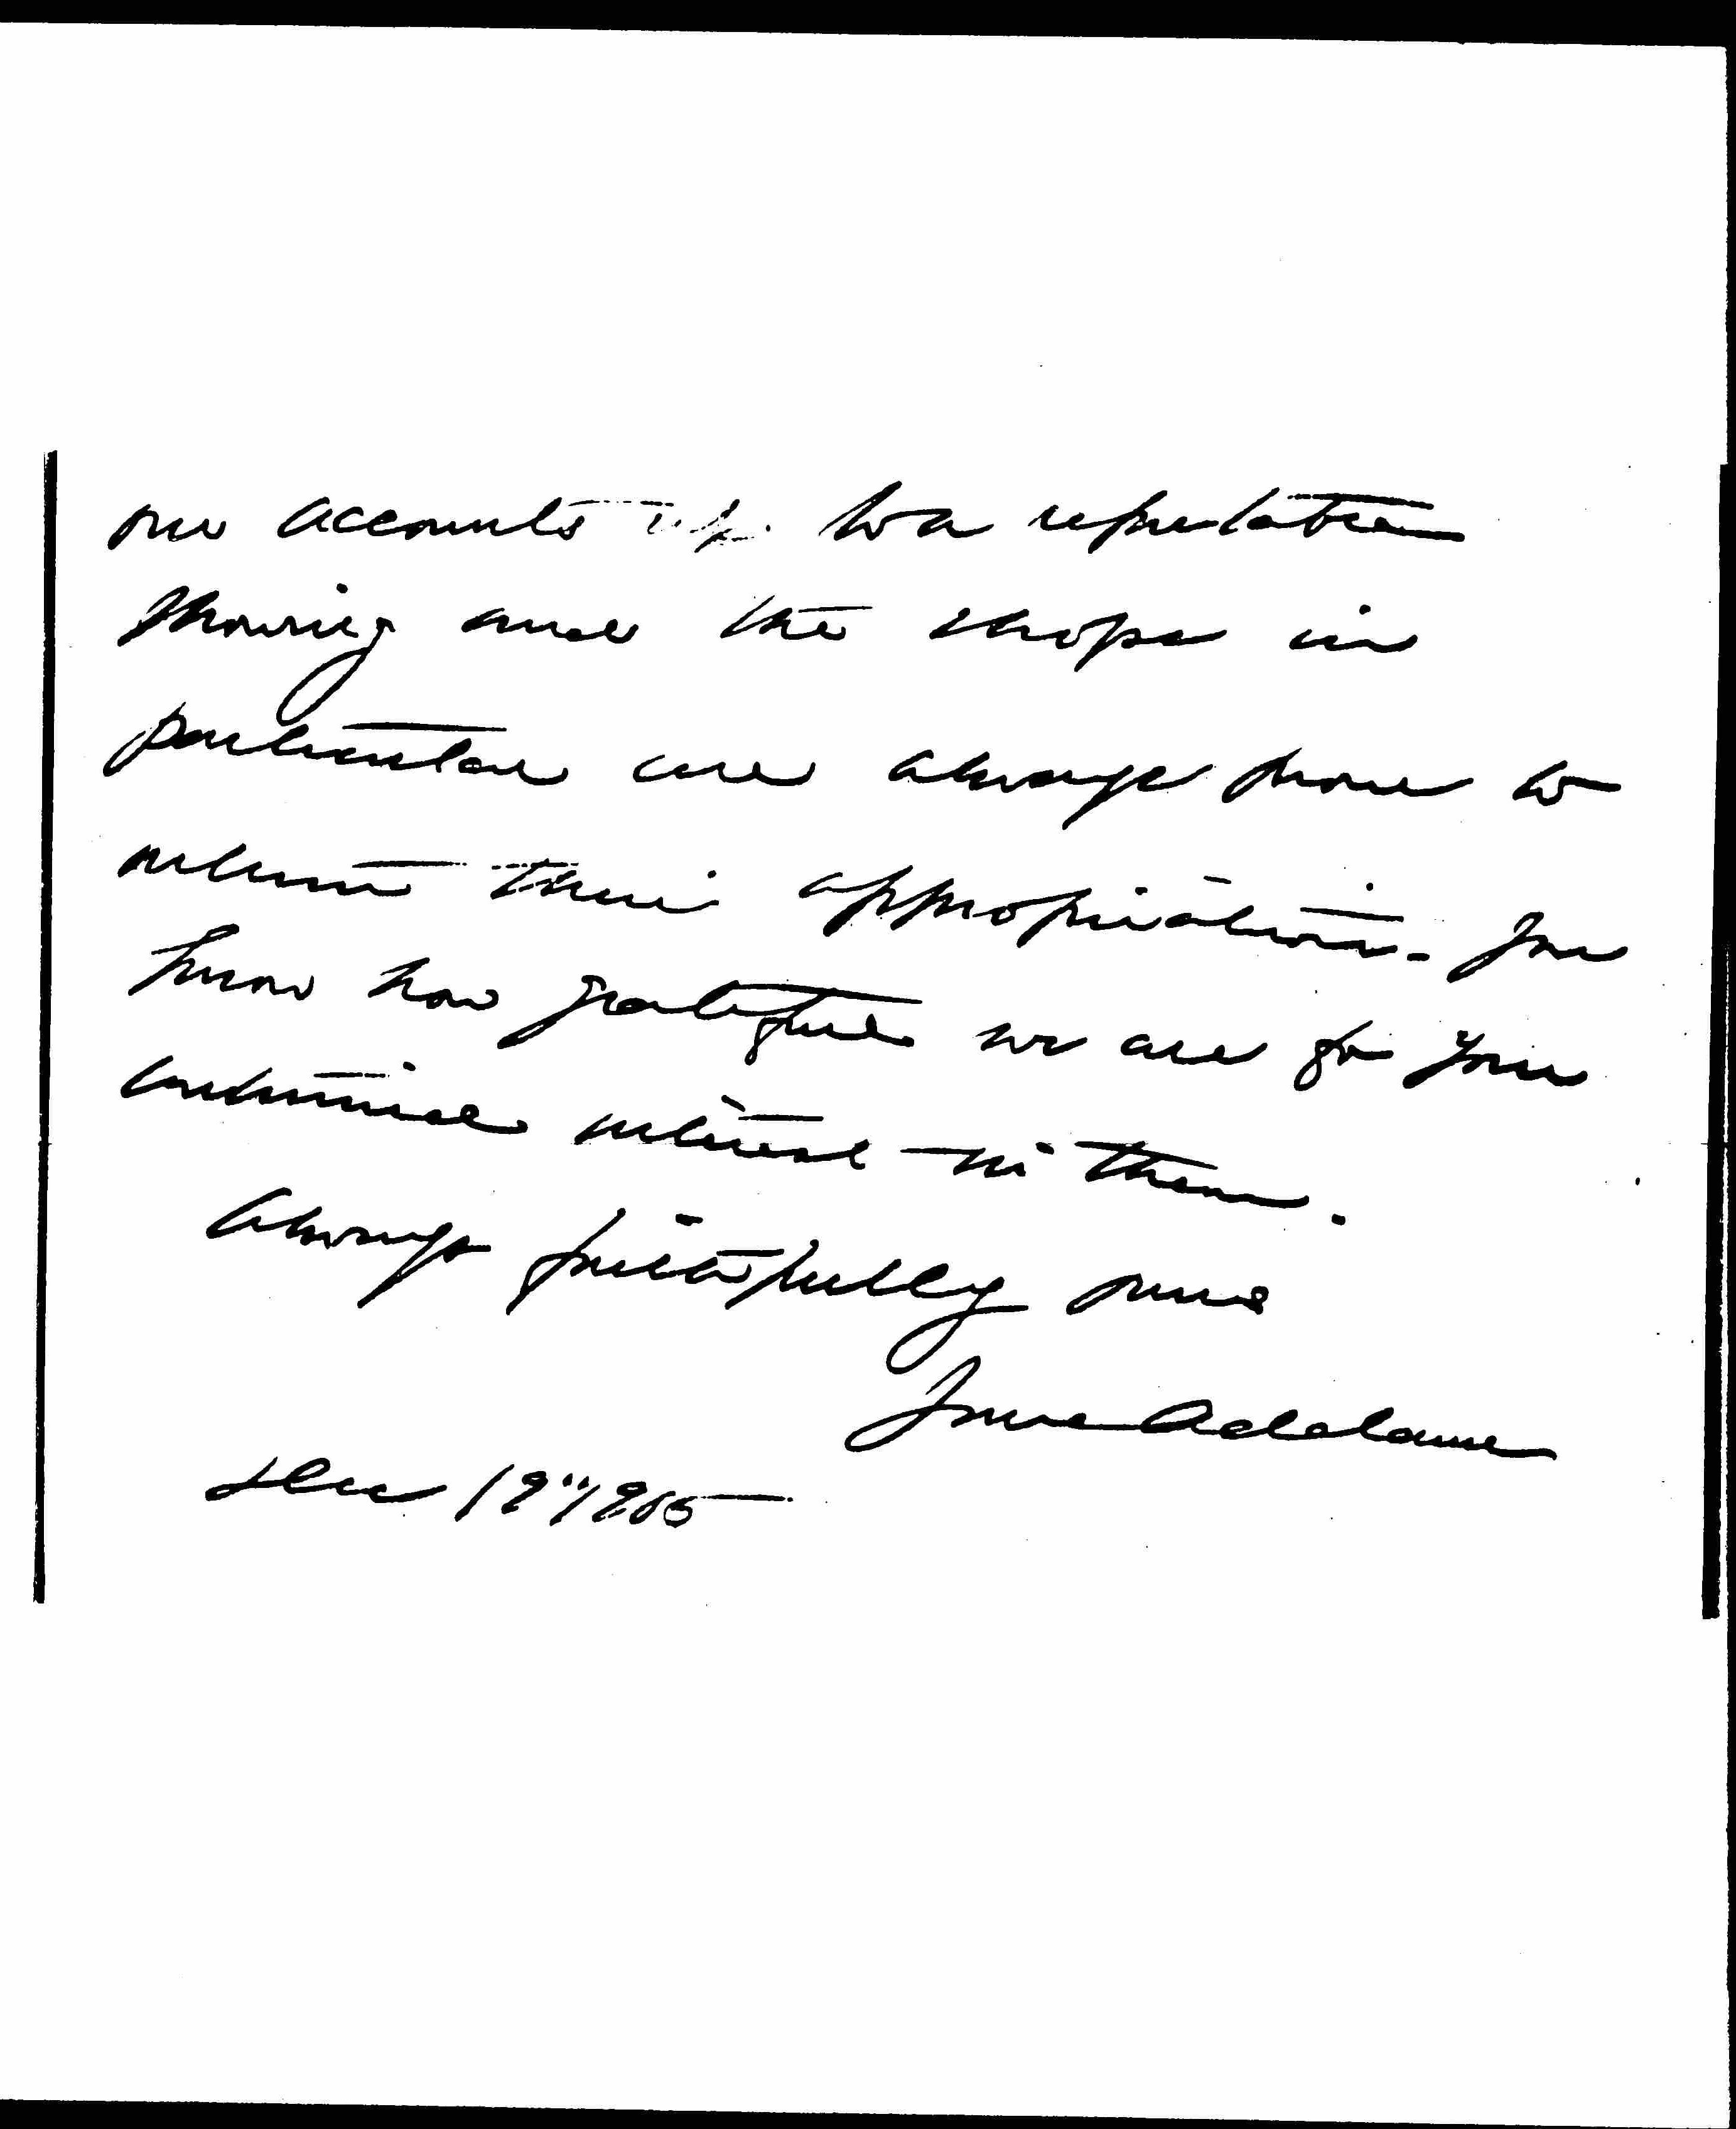 our accounts up to a reputable
showing and the shops in
particular are always prone to
return their appropriations. You
know how grateful we are for your
continued interest in them.
Always faithfully yours
Jane Addams
Dec 19" 1905